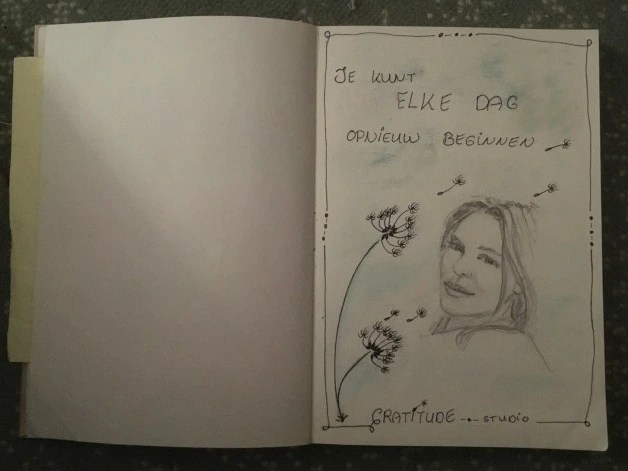 JE KUNT
ELKE DAG
OPNIEUW BEGINNEN
GRATITUDE STUDIO